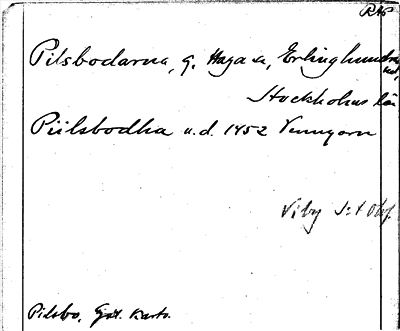 Pilsbodarna, g. Haga sn, Erlinghundra hd,
Stockholms län
Piilsbodha u.d. 1452 Venngarn
Viby S:t Olof.
Pilsbo, Gst. karta.